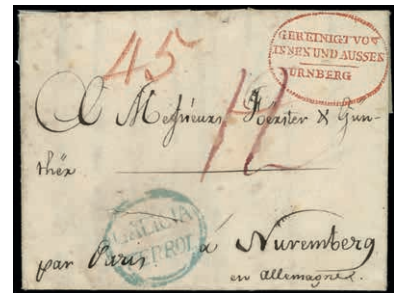 45
GEREINIGT VON
INNEN UND AUSSEN
NURNBERG
A Messieurs Förster & Gun-
ther
12
GALICIA
FERROL
par Paris à Nuremberg
en allemagne.